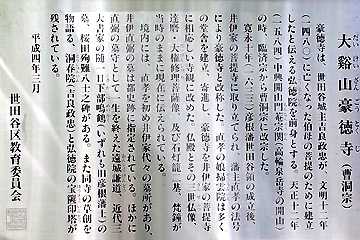 大谿山豪徳寺（曹洞宗）
豪徳寺は、世田谷城主吉良政忠が、文明十二年
（一四八〇）に亡くなった伯母の菩提のために建立
したと伝える弘徳院を前身とする。天正十二年
（一五八四）中興開山門菴宗関（高輪泉岳寺の開山）
の時、臨済宗から曹洞宗に改宗した。
寛永十年（一六三三）彦根藩世田谷領の成立後、
井伊家の菩提寺に取り立てられ、藩主直孝の法号
により豪徳寺と改称した。直孝の娘掃雲院は多く
の堂舎を建立、寄進し、豪徳寺を井伊家の菩提寺
に相応しい寺観に改めた。仏殿とその三世仏像、
達磨・大権修理菩薩像、及び石灯籠二基、梵鐘が
当時のままに現在に伝えられている。
境内には、直孝を初め井伊家代々の墓所があり、
井伊直弼の墓は都史跡に指定されている。ほかに
直弼の墓守として一生を終えた遠城謙道、近代三
大書家の随一日下部鳴鶴（いずれも旧彦根藩士）の
墓、桜田殉難八士之碑がある。また同寺の草創を
物語る、洞春院（吉良政忠）と弘徳院の宝篋印塔が
残されている。
平成四年三月
世田谷区教育委員会